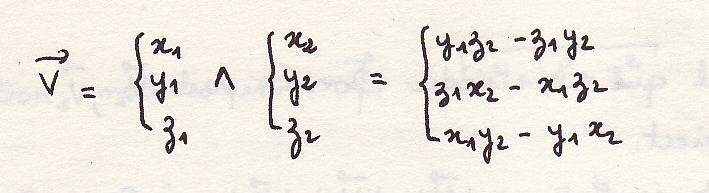 V⃗ = { x₁ y₁ z₁ ∧ { x₂ y₂ z₂ = { y₁z₂ - z₁y₂
z₁x₂ - x₁z₂
x₁y₂ - y₁x₂